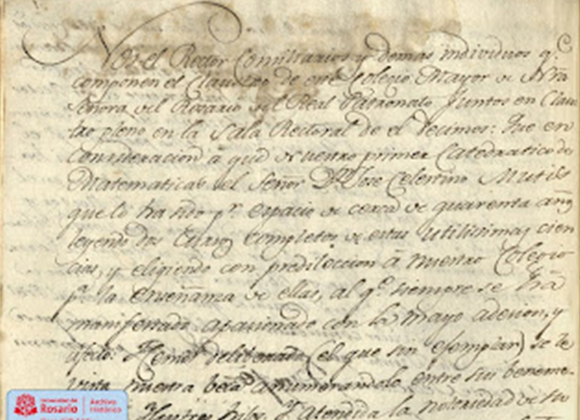 Nos el Rector Consiliarios y demas individuos q.e
componen el Claustro de este Colegio Mayor de Ntra
Señora del Rosario del Real Patronato Juntos en Claus
tro pleno en la Sala Rectoral de el Decimos: Que en
consideracion a que nuestro primer Catedratico de
Matematicas el Señor D.r D.n Jose Celestino Mutis
que lo ha sido p.r espacio de cerca de quarenta años
leyendo dos Cursos completos de estas utilisimas cien
cias, y eligiendo con predileccion a nuestro Colegio
p.a la enseñanza de ellas, al q.e siempre se ha
manifestado apasionado con la mayor adesion, y
afecto: Hemos deliberado (el que sin exemplar) se le
vista nuestra beca enumerandolo entre sus beneme-
y atendida la notoriedad de su
Universidad del
Rosario
Archivo
Histórico